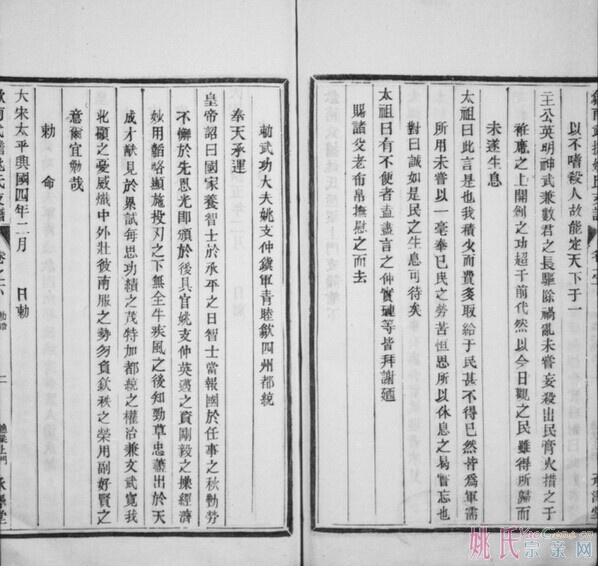 以不嗜殺人故能定天下于一
主公英明神武兼數君之長驅除禍亂未嘗妄殺出民膏火措之于
袵席之上開創之功超于前代然以今日觀之民雖得所歸而
未遂生息
太祖曰此言是也我積少而費多取給于民甚不得已然皆爲軍需
所用未嘗以一毫奉已民之勞苦恒思所以休息之曷嘗忘也
對曰誠如是民之生息可待矣
太祖曰有不便者盡言之仲實璉等皆拜謝廼
賜諸父老布帛撫慰之而去
勅武功大夫姚支仲鎭軍青睦歙四州都統
奉天承運
皇帝詔曰國家養智士於承平之日智士當報國於任事之秋勤勞
不懈於先恩光即頒於後具官姚支仲英邁之資剛毅之操經濟
妙用韜略顯施投刃之下無全牛疾風之後知勁草忠藎出於天
成才猷見於累試每思功績之茂特加都統之權治兼文武寛我
北顧之憂威熾中外壯彼南服之勢勿負欽秩之榮用副好賢之
意爾宜勉哉
勅命
大宋太平興國四年二月 日勅
卷之六
姚氏宗亲网
YaoGene.cn